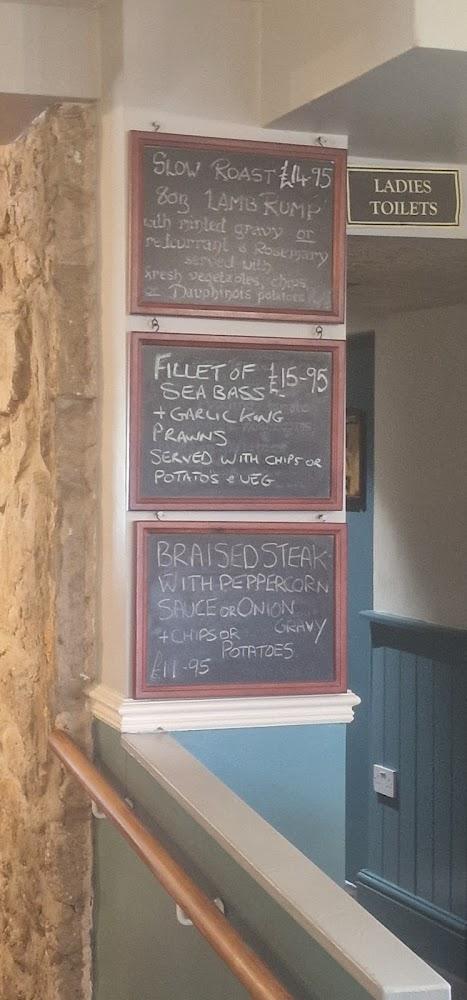 SLOW ROAST £14-95
8oz LAMB RUMP
with minted gravy or
redcurrant & Rosemary
served with
fresh vegetables, chips
or Dauphinois potatoes
LADIES
TOILETS
FILLET OF £15-95
SEA BASS
+ GARLIC KING
PRAWNS
SERVED WITH CHIPS OR
POTATO'S & VEG
BRAISED STEAK
WITH PEPPERCORN
SAUCE OR ONION
GRAVY
+ CHIPS OR
POTATOES
£11-95